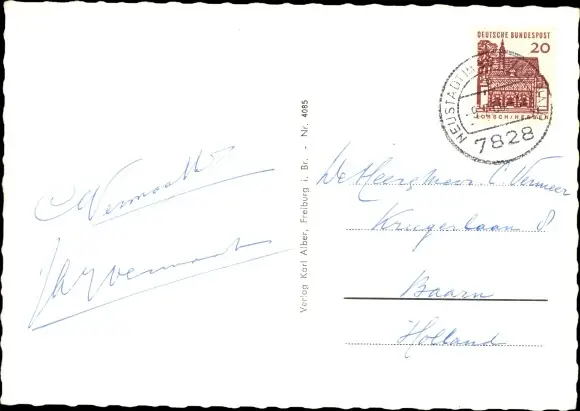 DEUTSCHE BUNDESPOST
20
LORSCH/HESSEN
NEUSTADT
7828
C Vermaat
Verlag Karl Alber, Freiburg i. Br. - Nr. 4085
C Vermeer
Krugerlaan 8
Baarn
Holland